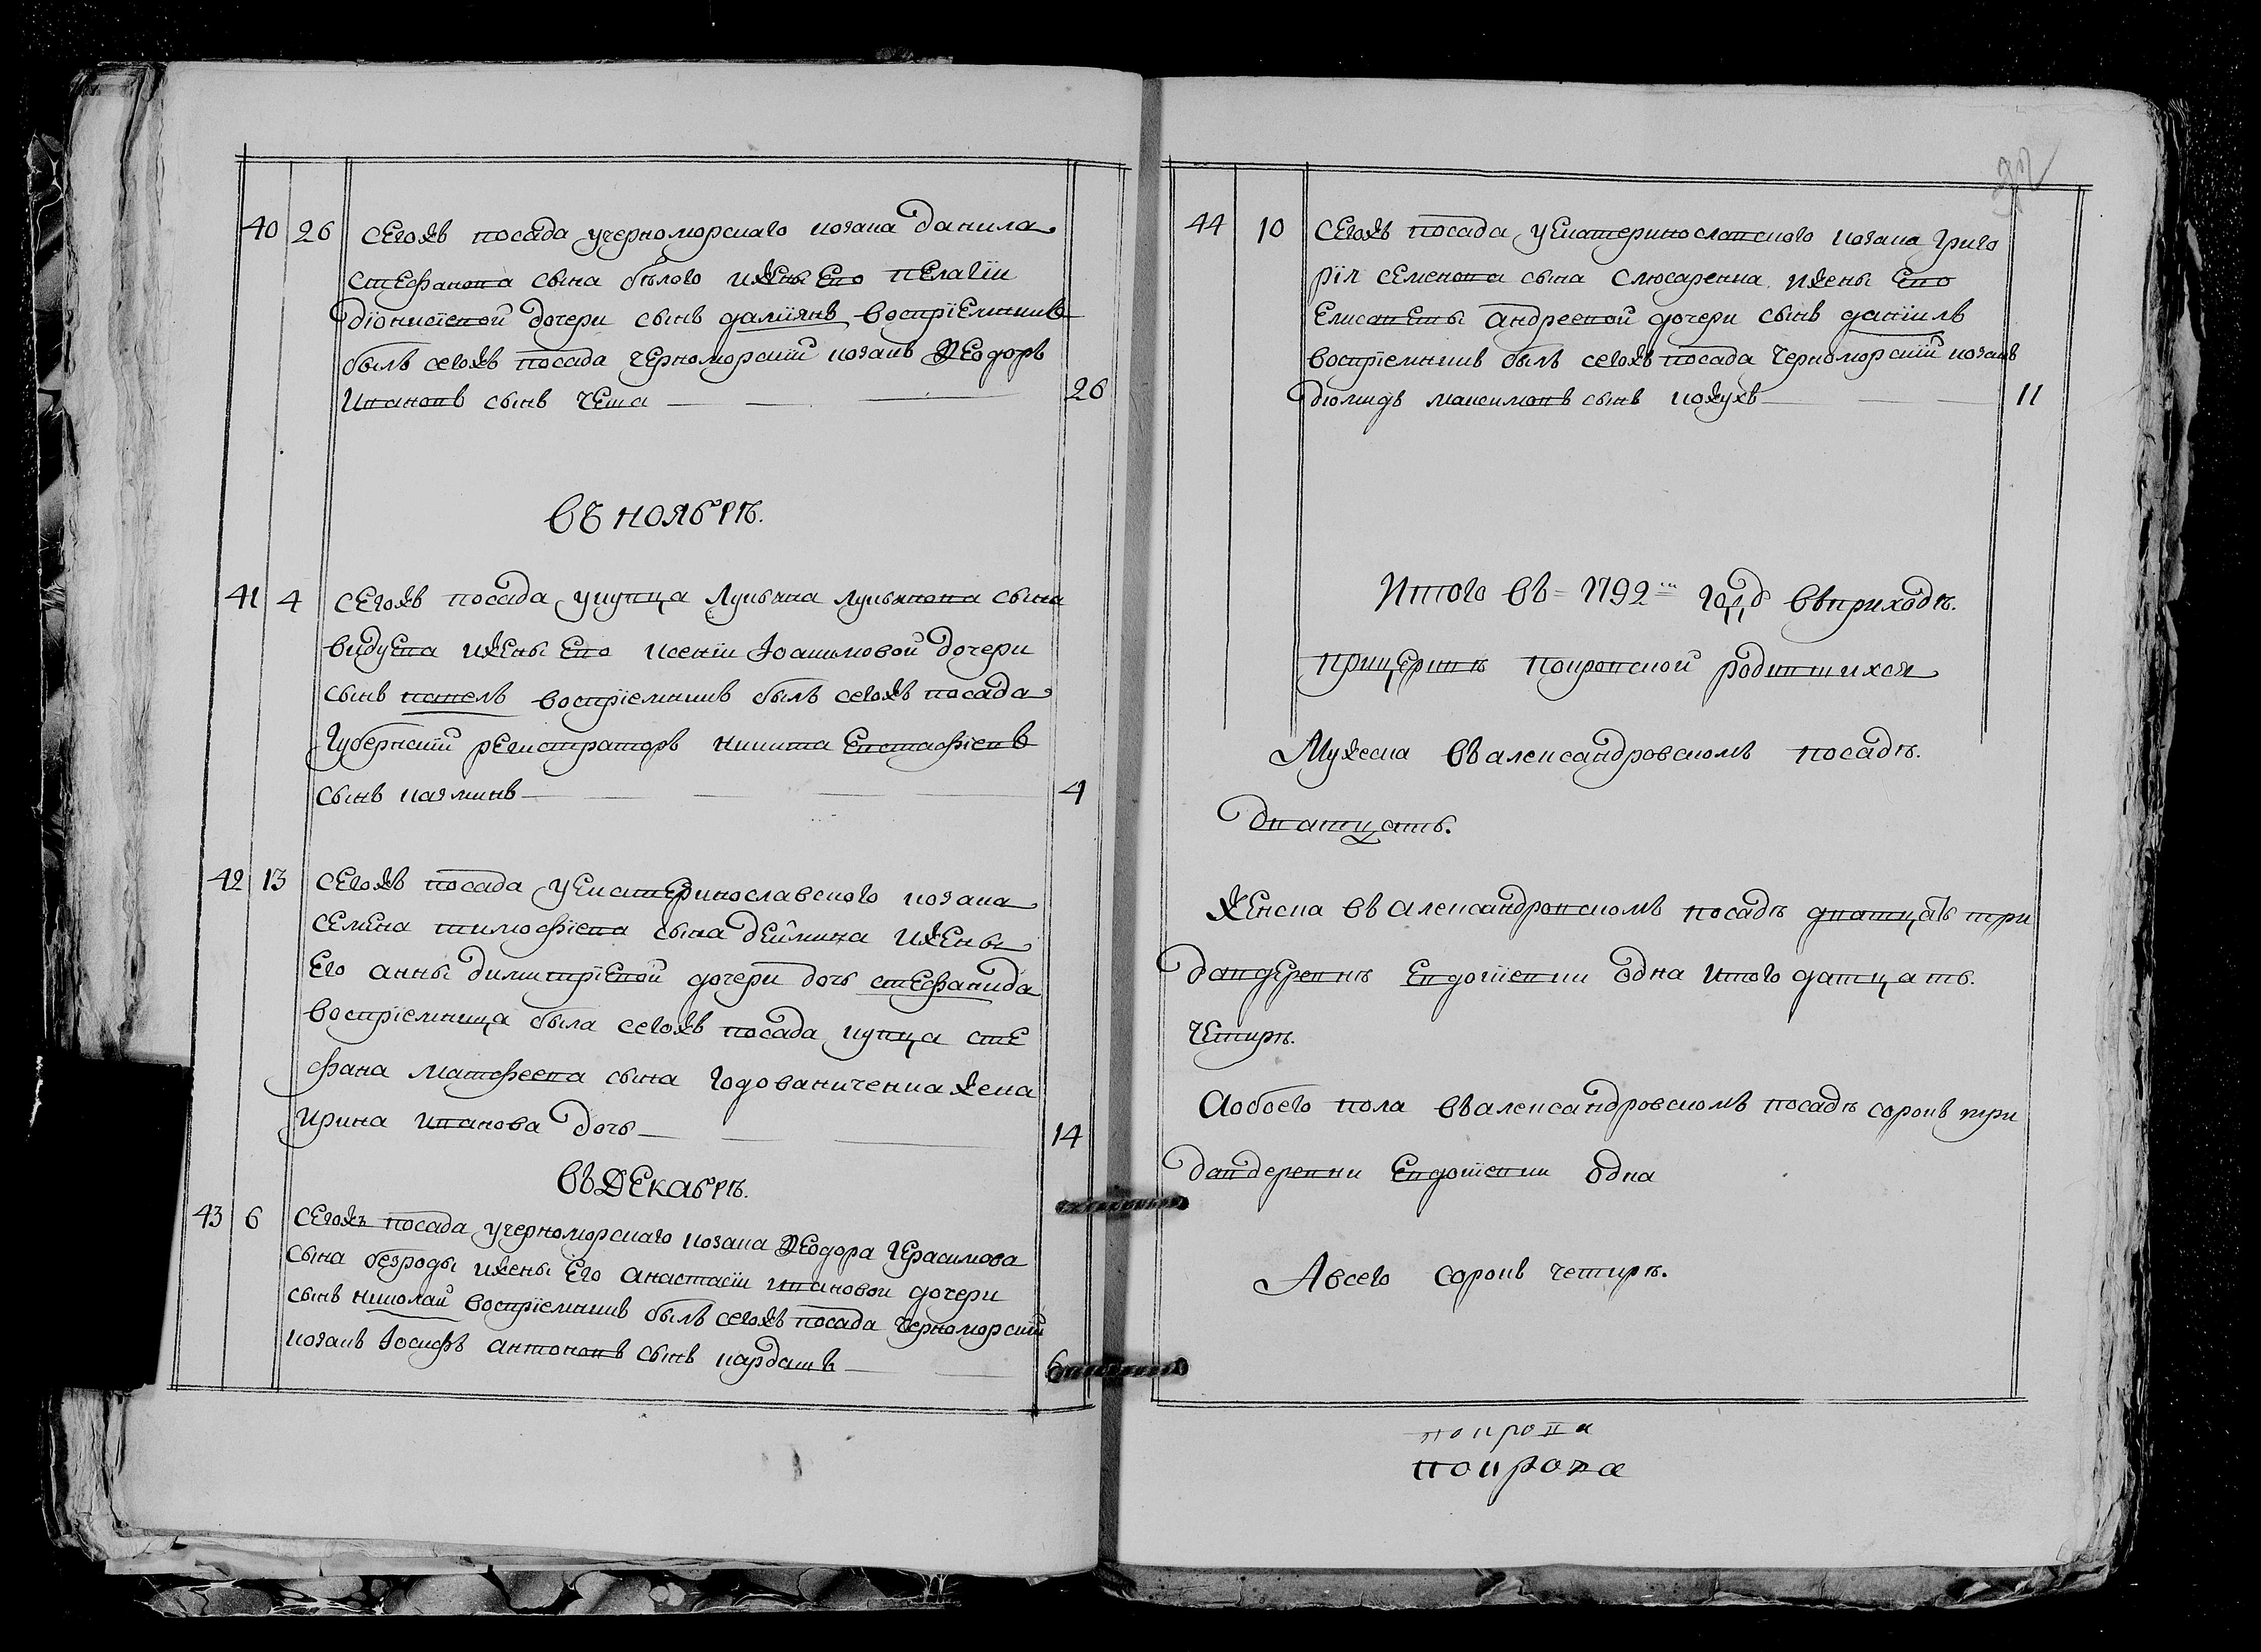 40 26 Сегожъ посада учерноморскаго козака данила
стефанова сына бѣлого ижены Его пелагіи
діонисіевой дочери сынъ даміянъ воспріемникъ
былъ сегожъ посада черноморскій козакъ Ѳеодоръ
Ивановъ сынъ чепа 26
въ ноябрѣ.
41 4 Сегожъ посада укупца лукьяна лукьянова сына
видуева ижены Его ксеніи Іоакимовой дочери
сынъ павелъ воспріемникъ былъ сегожъ посада
Губернскій регистраторъ никита Евстафіевъ
сынъ казминъ 4
42 13 Сегожъ посада уекатеринославского козака
семена тимофіева сына деймика ижены
Его анны димитріевой дочери дочь стефанида
воспріемница была сегожъ посада купца сте
фана матфеева сына годованиченка жена
ирина иванова дочь 14
въ Декабрѣ.
43 6 Сегожъ посада учерноморскаго козака Ѳеодора Герасимова
сына безроды ижены Его анастасіи ивановой дочери
сынъ николай воспріемникъ былъ сегожъ посада черноморскій
козакъ Іосифъ антоновъ сынъ кардашъ 6
44 10 Сегожъ посада уекатеринославского козака григо
рія семенова сына слюсаренка ижены Его
Елисаветы андреевой дочери сынъ даніилъ
воспріемникъ былъ сегожъ посада черноморскій козакъ
діомидъ максимовъ сынъ кожухъ 11
Итого въ 1792 годѣ въприходѣ.
прицерквѣ покровской родившихся
Мужеска въалександровскомъ посадѣ.
дватцать.
Женска въ александровскомъ посадѣ дватцать три
вдеревнѣ Евдошевки одна итого датцать.
четирѣ.
Аобоего пола въалександровскомъ посадѣ сорокъ три
вдеревни Евдошевки одна
Авсего сорокъ четирѣ.
покрова
покрова